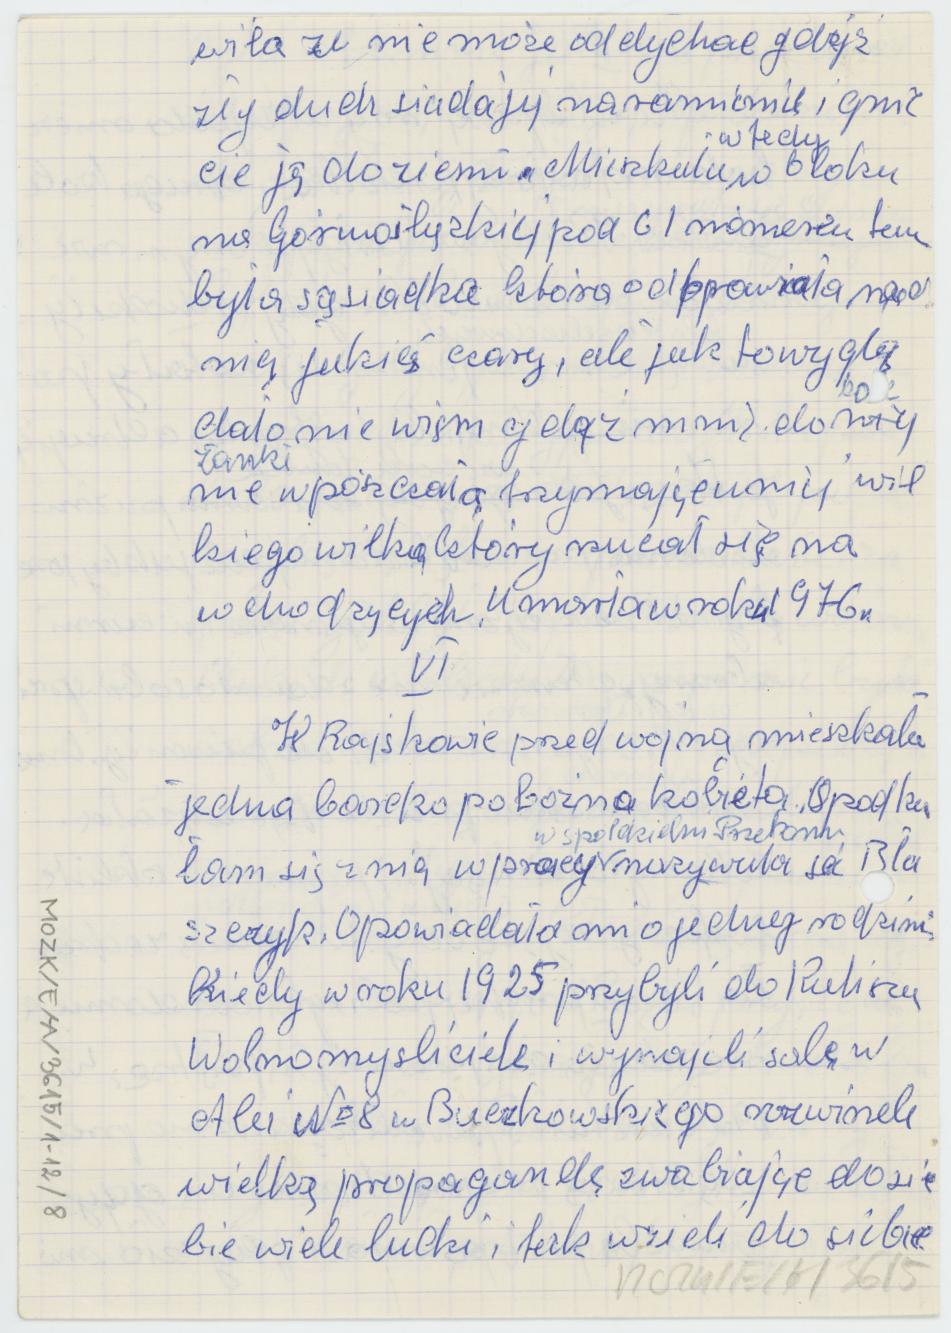 wiła że nie może oddychać gdyż
zły duch siadają na ramionie i gnie
cie ją do ziemi. Mieszkała wtedy w bloku
na Górnośląskiej pod 61 nómerem tam
była sąsiadka która odprawiała nad
nią jakieś czary, ale jak to wyglą
dało nie wiem gdyż mnie do koleżanki
nie wpószczała trzymając u niej wiel
kiego wilka który rzucał się na
wchodzących. Umarła w roku 1976.
VI
W Rajskowie przed wojną mieszkała
jedna bardzo pobożna kobieta. Spodku
łam się z nią w pracy w spółdzielni Przełom nazywała się Bła
szczyk. Opowiadała mi o jednej rodzinie
Kiedy w roku 1925 przybyli do Kalisza
Wolnomyśliciele i wynajeli sale w
Alei № 8 u Buczkowskiego rozwineli
wielką propagandę zwabiając do sie
bie wiele ludzi, i tak wzieli do siebie
MOZK/E/A/3615
MOZK/E/A/3615/1-12/8